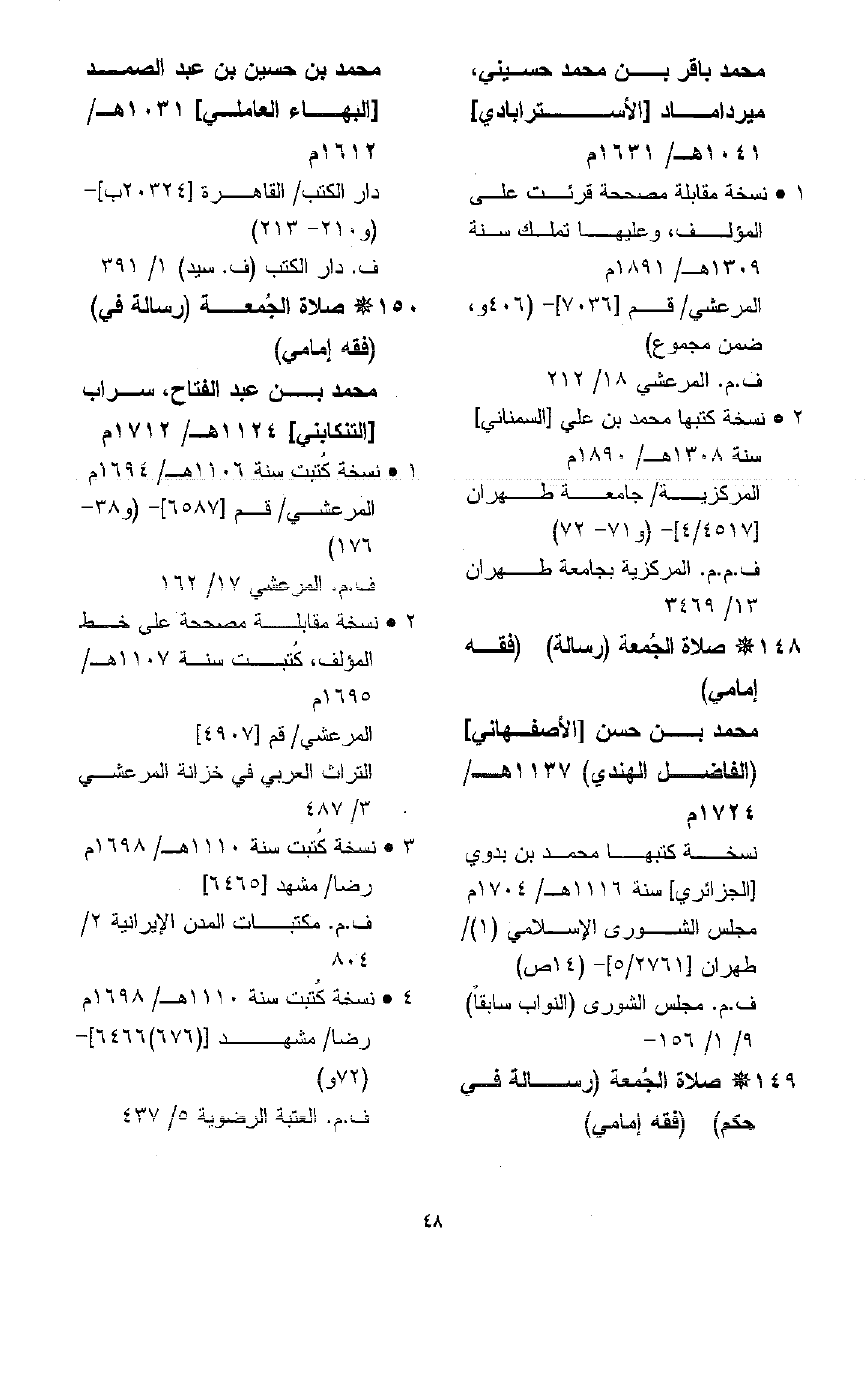 محمد باقر بن محمد حسيني،
ميرداماد [الأسترابادي]
١٠٤١هـ/ ١٦٣١م
١ • نسخة مقابلة مصححة قرئت على
المؤلف، وعليها تملك سنة
١٣٠٩هـ/ ١٨٩١م
المرعشي/ قم [٧٠٣٦]- (٤٠٦و،
ضمن مجموع)
ف.م. المرعشي ١٨/ ٢١٢
٢ • نسخة كتبها محمد بن علي [السمناني]
سنة ١٣٠٨هـ/ ١٨٩٠م
المركزية/ جامعة طهران
[٤/٤٥١٧]- (و٧١- ٧٢)
ف.م.م. المركزية بجامعة طهران
١٣/ ٣٤٦٩
١٤٨ * صلاة الجُمعة (رسالة) (فقه
إمامي)
محمد بن حسن [الأصفهاني]
(الفاضل الهندي) ١١٣٧هـ/
١٧٢٤م
نسخة كتبها محمد بن بدوي
[الجزائري] سنة ١١١٦هـ/ ١٧٠٤م
مجلس الشورى الإسلامي (١)/
طهران [٥/٢٧٦١]- (١٤ص)
ف.م. مجلس الشورى (النواب سابقاً)
٩/ ١/ ١٥٦-
١٤٩ * صلاة الجُمعة (رسالة في
حكم) (فقه إمامي)
محمد بن حسين بن عبد الصمد
[البهاء العاملي] ١٠٣١هـ/
١٦١٢م
دار الكتب/ القاهرة [٢٠٣٢٤ب]-
(و٢١٠- ٢١٣)
ف. دار الكتب (ف. سيد) ١/ ٣٩١
١٥٠ * صلاة الجُمعة (رسالة في)
(فقه إمامي)
محمد بن عبد الفتاح، سراب
[التنكابني] ١١٢٤هـ/ ١٧١٢م
١ • نسخة كُتبت سنة ١١٠٦هـ/ ١٦٩٤م
المرعشي/ قم [٦٥٨٧]- (و٣٨-
١٧٦)
ف.م. المرعشي ١٧/ ١٦٢
٢ • نسخة مقابلة مصححة على خط
المؤلف، كُتبت سنة ١١٠٧هـ/
١٦٩٥م
المرعشي/ قم [٤٩٠٧]
التراث العربي في خزانة المرعشي
٣/ ٤٨٧
٣ • نسخة كُتبت سنة ١١١٠هـ/ ١٦٩٨م
رضا/ مشهد [٦٤٦٥]
ف.م. مكتبات المدن الإيرانية ٢/
٨٠٤
٤ • نسخة كُتبت سنة ١١١٠هـ/ ١٦٩٨م
رضا/ مشهد [(٦٧٦)٦٤٦٦]-
(٧٢و)
ف.م. العتبة الرضوية ٥/ ٤٣٧
٤٨